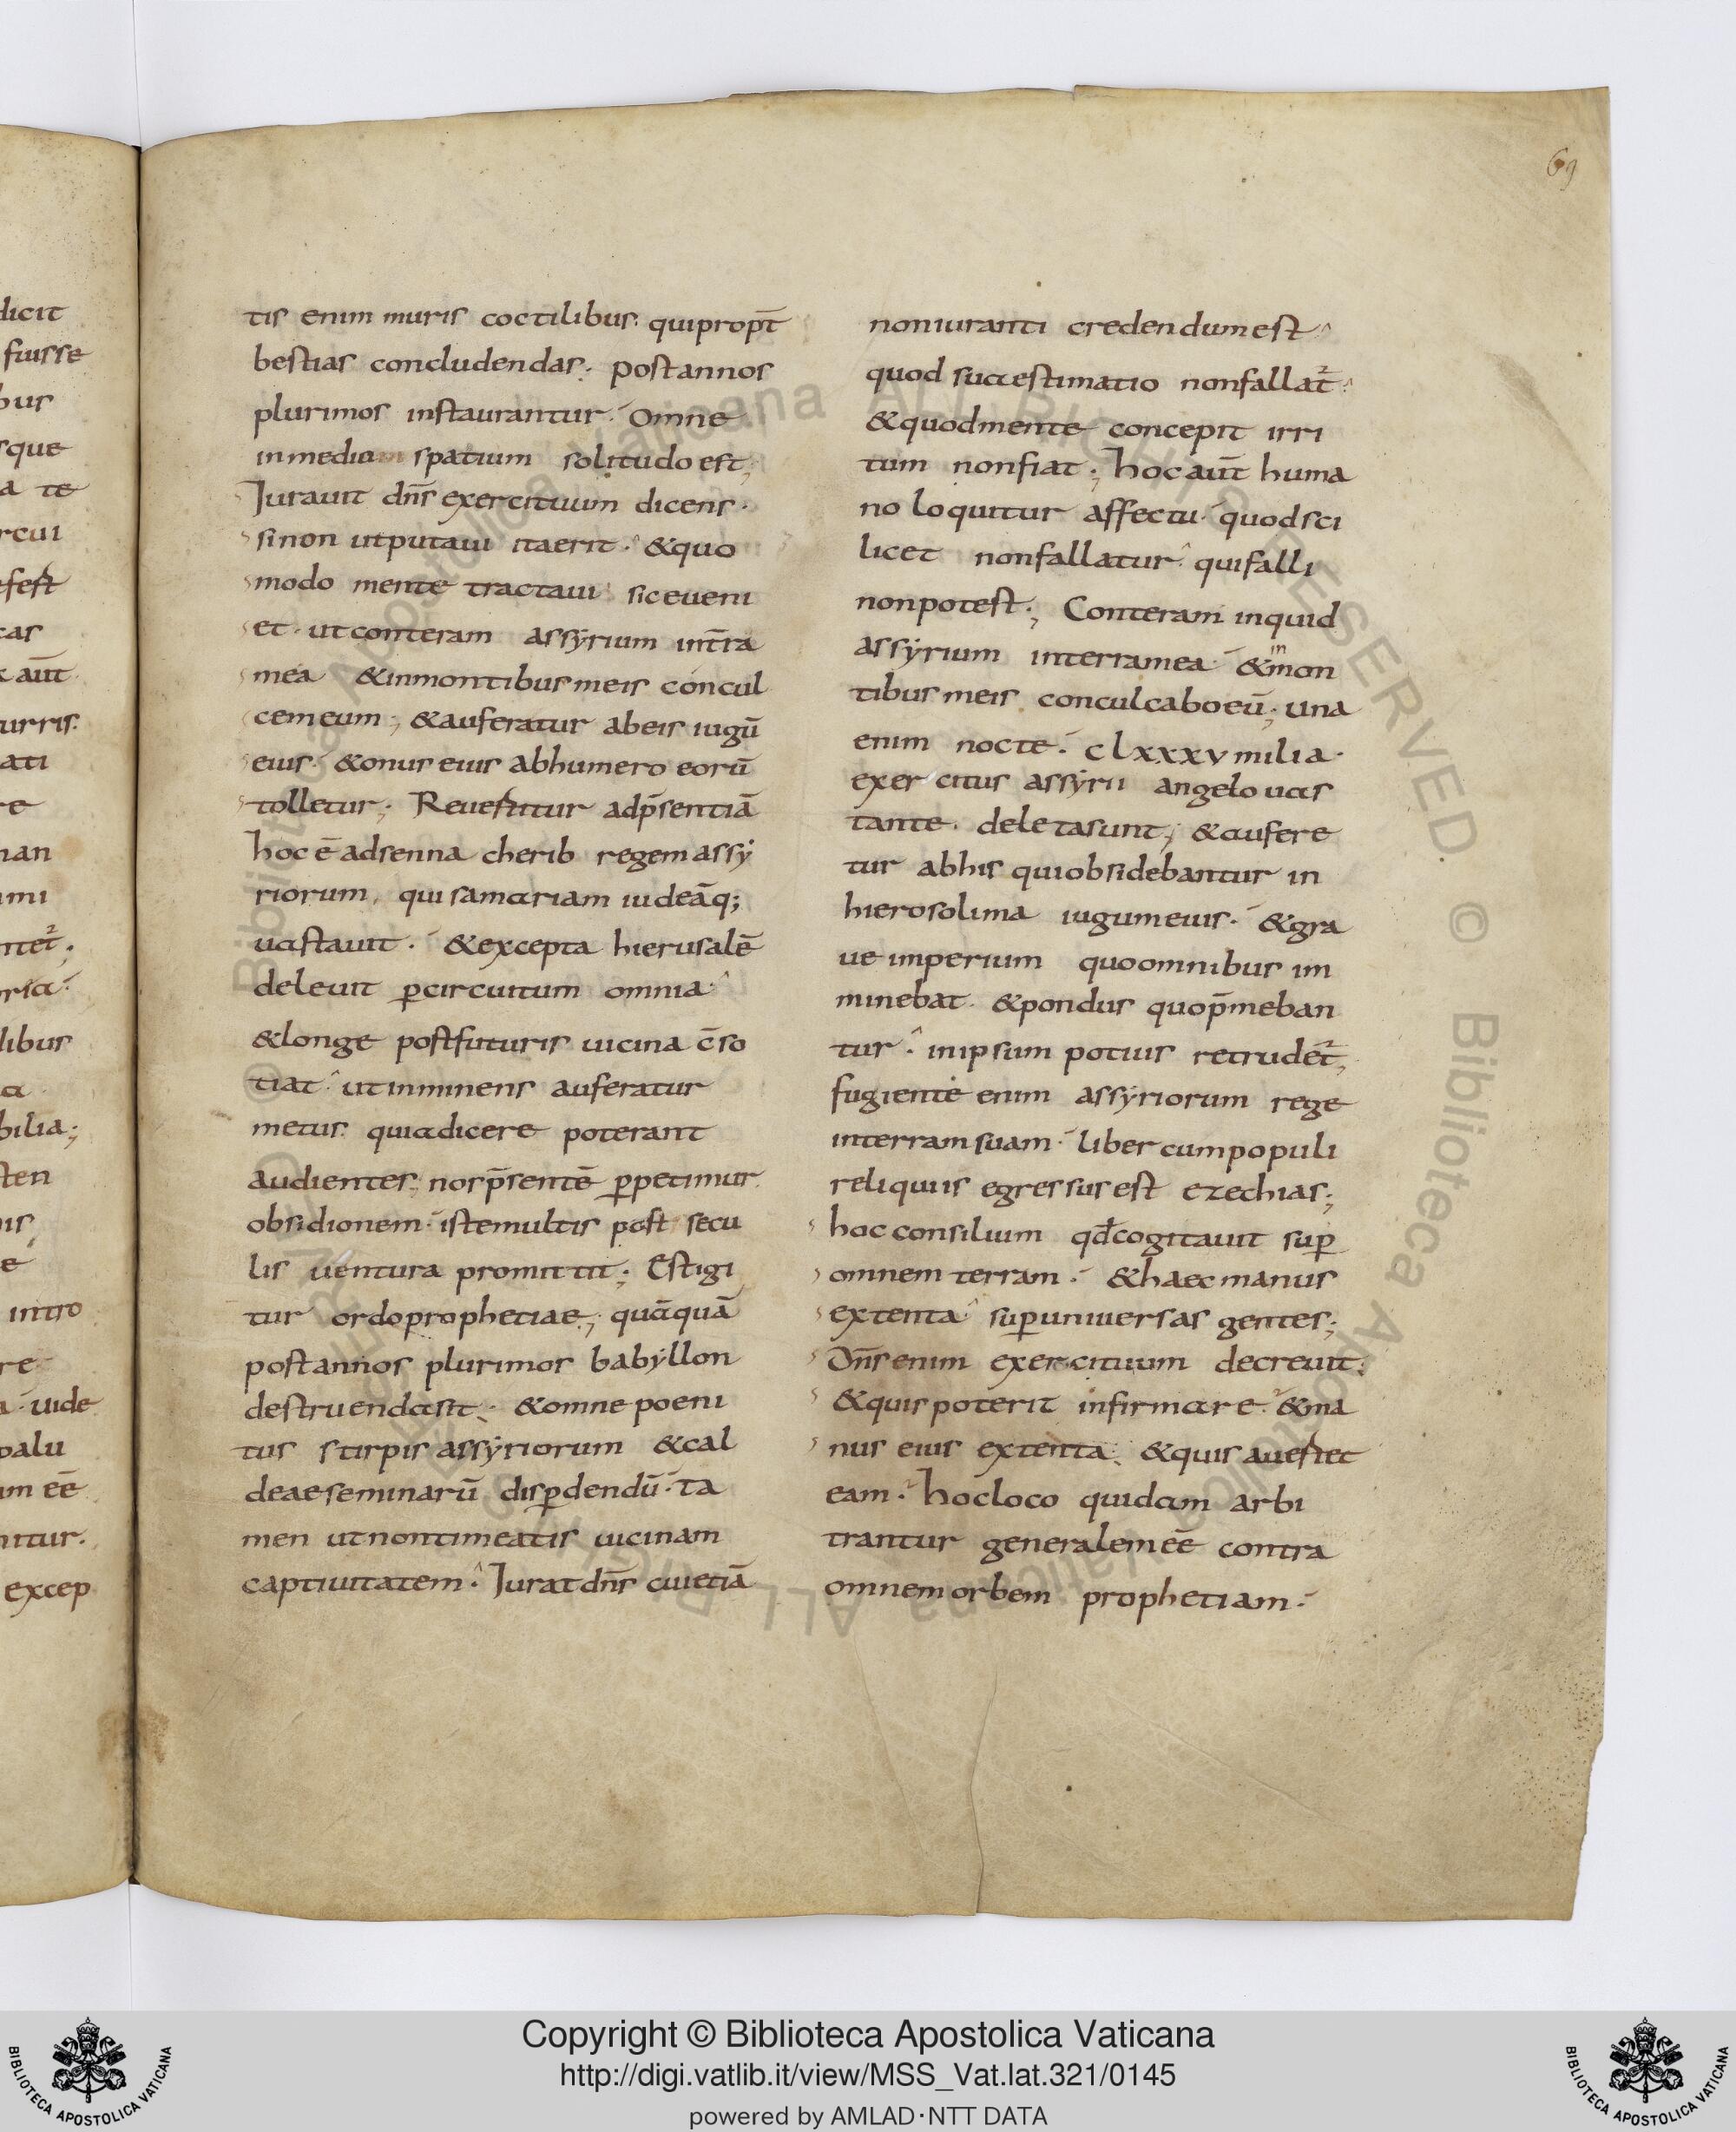 69
dicit
fuisse
bus
sque
a te
rcui
efest
cas
& aūt
urris.
ati
re
nan
imi
ntet̄;
oria
libus
a
bilia;
sten
nis
e
intro
re
a uide
palu
um eē
nitur.
excep
tis enim muris coctilibus. quipropt̄
bestias concludendas; postannos
plurimos instaurantur. Omne
inmedium spatium solitudo est;
Iurauit dn̄s exercituum dicens.
sinon utputaui itaerit. &quo
modo mente tractaui. siceueni
et. utconteram assyrium int̄ra
mea &inmontibusmeis concul
cemeum; &auferatur abeis iugū
eius. &onus eius abhumero eorū
tolletur; Reuertitur adp̄sentiā
hoc ē adsenna cherib regem assy
riorum, qui samariam iudeāq;
uastauit. &excepta hierusalē
deleuit ꝑcircuitum omnia
&longe postfuturis uicina c̄so
tiat. utimminens auferatur
metus. quiadicere poterant
audientes; nosp̄sentē ꝑpetimur.
obsidionem. istemultis post secu
lis uentura promittit; Estigi
tur ordoprophetiae; quāquā
postannos plurimos babyllon
destruendasit; &omne poeni
tus stirpis assyriorum &cal
deaeseminarū disꝑdendū. ta
men utnontimeatis uicinam
captiuitatem. Iuratdn̄s cuietiā
noniuranti credendumest
quod suaestimatio nonfallat̄.
&quodmente concepit irri
tum nonfiat; hocaūt huma
no loquitur affectu. quodsci
licet nonfallatur. quifalli
nonpotest; Conteram inquid
assyrium interramea. &inmon
tibusmeis conculcaboeū; una
enim nocte. clxxxv milia.
exercitus assyrii angelo uas
tante. deletasunt; &aufere
tur abhis quiobsidebantur in
hierosolima iugumeius. &gra
ue imperium quoomnibus im
minebat. &pondus quop̄meban
tur. inipsum potius retrudet̄;
fugiente enim assyriorum rege
interramsuam. liber cumpopuli
reliquiis egressusest ezechias;
hoc consilium qđcogitauit suꝑ
omnem terram. &haec manus
extenta suꝑuniuersas gentes;
Dn̄senim exercituum decreuit;
&quispoterit infirmare. &ma
nus eius extenta; &quis auertet
eam. hocloco quidam arbi
trantur generalemeē contra
omnemorbem prophetiam.
Copyright © Biblioteca Apostolica Vaticana
http://digi.vatlib.it/view/MSS_Vat.lat.321/0145
powered by AMLAD·NTT DATA
BIBLIOTECA APOSTOLICA VATICANA
BIBLIOTECA APOSTOLICA VATICANA